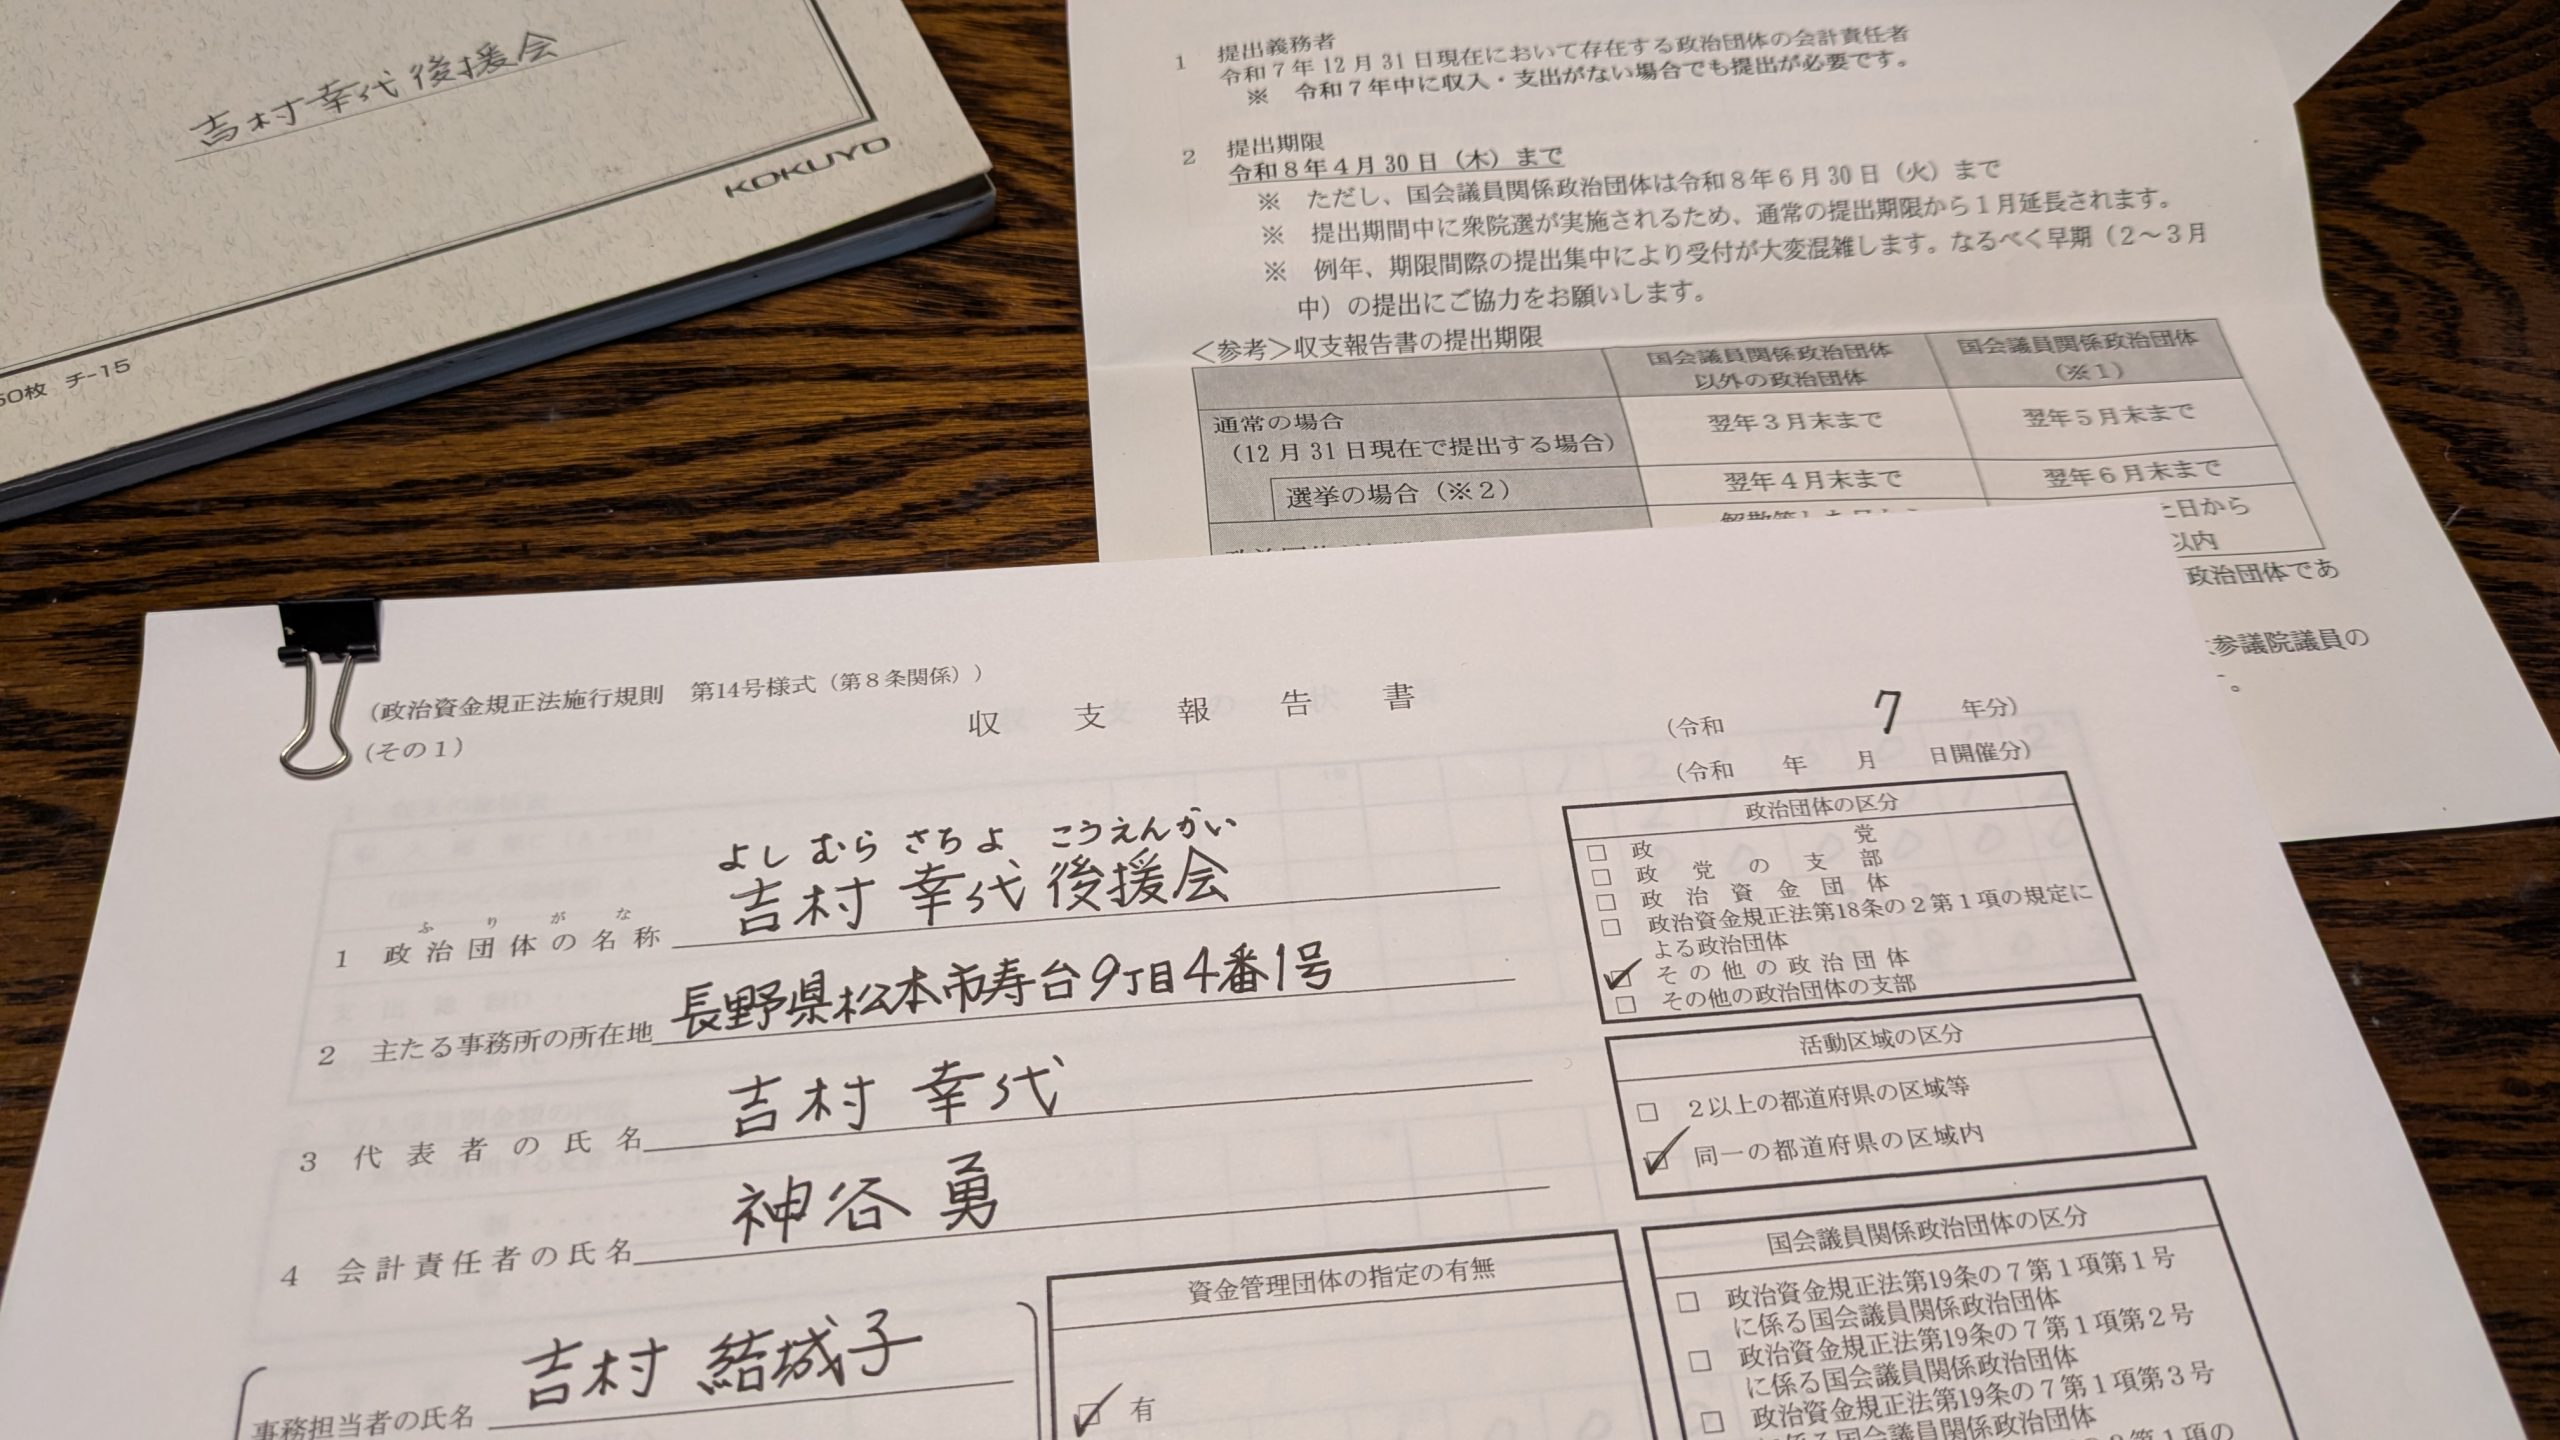 吉村幸代後援会
KOKUYO
50枚 チ-15
1 提出義務者
令和7年12月31日現在において存在する政治団体の会計責任者
※ 令和7年中に収入・支出がない場合でも提出が必要です。
2 提出期限
令和8年4月30日(木)まで
※ ただし、国会議員関係政治団体は令和8年6月30日(火)まで
※ 提出期間中に衆院選が実施されるため、通常の提出期限から1月延長されます。
※ 例年、期限間際の提出集中により受付が大変混雑します。なるべく早期(2~3月
中)の提出にご協力をお願いします。
<参考>収支報告書の提出期限
国会議員関係政治団体
以外の政治団体
国会議員関係政治団体
(※1)
通常の場合
(12月31日現在で提出する場合)
翌年3月末まで
翌年5月末まで
選挙の場合(※2)
翌年4月末まで
翌年6月末まで
日から
以内
政治団体であ
参議院議員の
。
(政治資金規正法施行規則 第14号様式(第8条関係))
(その1)
収支報告書
(令和 7 年分)
(令和 年 月 日開催分)
よしむらさちよ こうえんかい
ふりがな
1 政治団体の名称 吉村幸代後援会
2 主たる事務所の所在地 長野県松本市寿台9丁目4番1号
3 代表者の氏名 吉村 幸代
4 会計責任者の氏名 神谷 勇
事務担当者の氏名 吉村 結城子
政治団体の区分
□ 政党
□ 政党の支部
□ 政治資金団体
□ 政治資金規正法第18条の2第1項の規定に
よる政治団体
☑ その他の政治団体
□ その他の政治団体の支部
活動区域の区分
□ 2以上の都道府県の区域等
☑ 同一の都道府県の区域内
資金管理団体の指定の有無
☑ 有
国会議員関係政治団体の区分
□ 政治資金規正法第19条の7第1項第1号
に係る国会議員関係政治団体
□ 政治資金規正法第19条の7第1項第2号
に係る国会議員関係政治団体
□ 政治資金規正法第19条の7第1項第3号
に係る国会議員関係政治団体